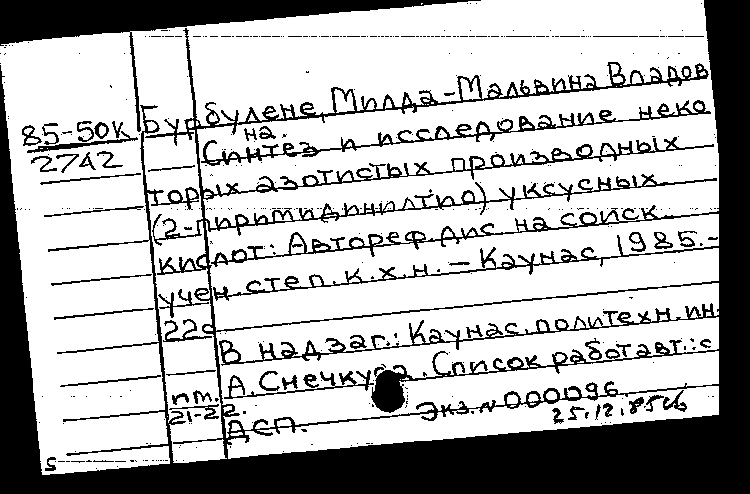 85-50К Бурбулене, Милда-Мальвина Владов
2742 на.
Синтез и исследование неко
торых азотистых производных
(2-пиримидинилтио) уксусных
кислот: Автореф. дис на соиск.
учен. степ. к.х.н. – Каунас, 1985.–
22с
В надзаг.: Каунас. политехн. ин-
А. Снечкуса. Список работ авт.: с
пт. 21-22.
ДСП. Экз. № 000096
25.12.85
5